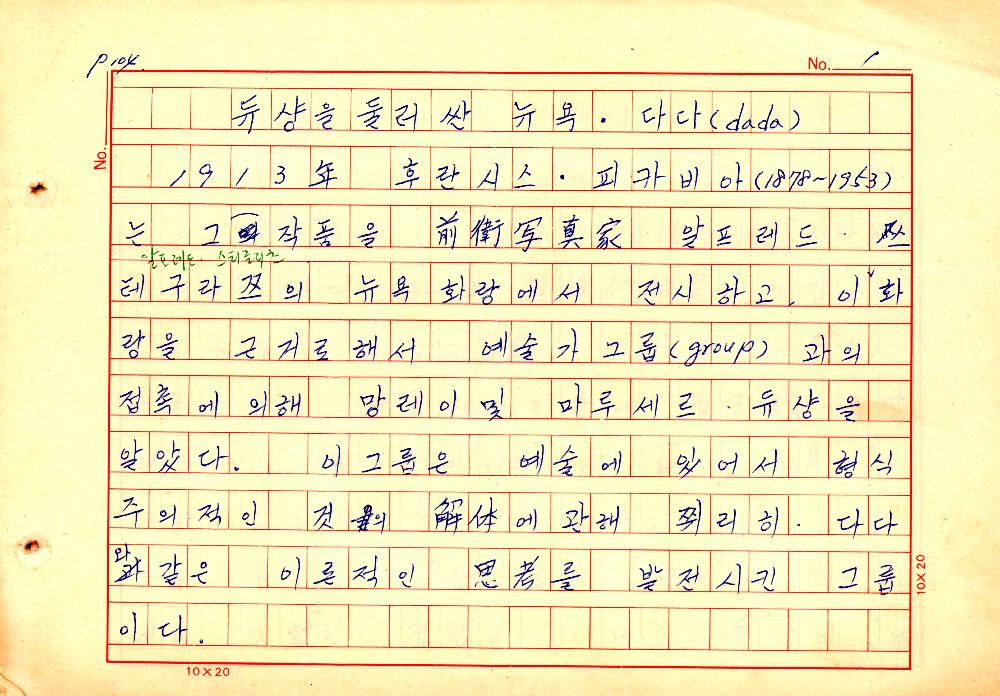 P 104.
No. 1
듀샹을 둘러싼 뉴욕·다다(dada)
No.
1913年 후란시스·피카비아(1878~1953)
는 그 작품을 前衛写真家 알프레드·
알프레드·스티글리츠
테구라쯔의 뉴욕화랑에서 전시하고, 이 화
랑을 근거로해서 예술가그룹(group)과의
접촉에 의해 망레이 및 마루세르·듀샹을
알았다. 이그룹은 예술에 있어서 형식
주의적인 것의 解体에 관해 쮜리히·다다
와 같은 이론적인 思考를 발전시킨 그룹
이다.
10×20
10×20